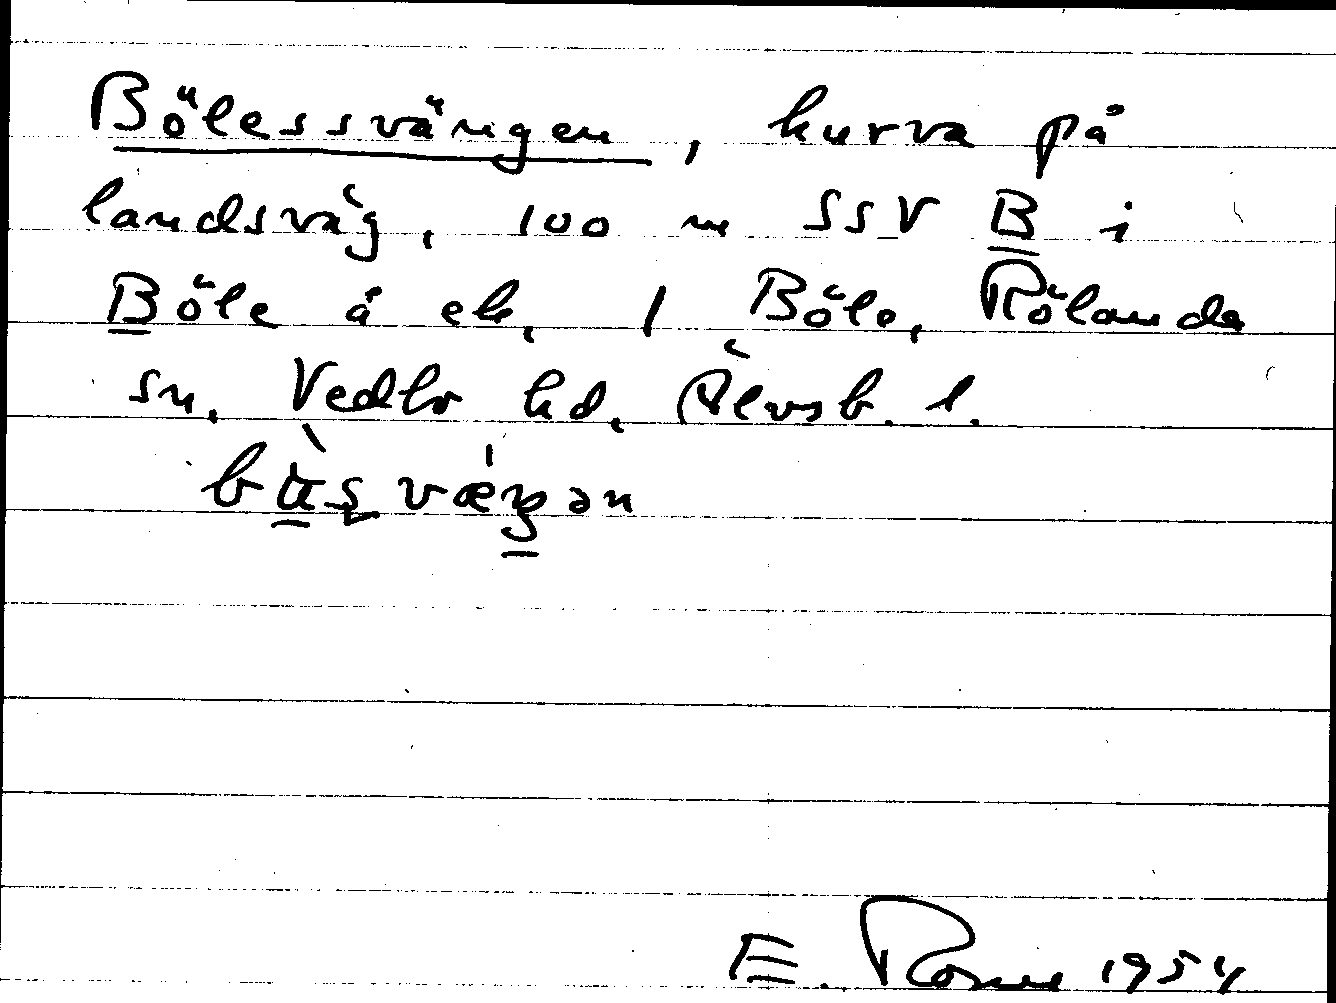 Bölessvängen, kurva på
landsväg, 100 m SSV B i
Böle å ek. 1 Böle, Rölanda
sn. Vedbo hd, Älvsb. l.
E. Rosne 1954